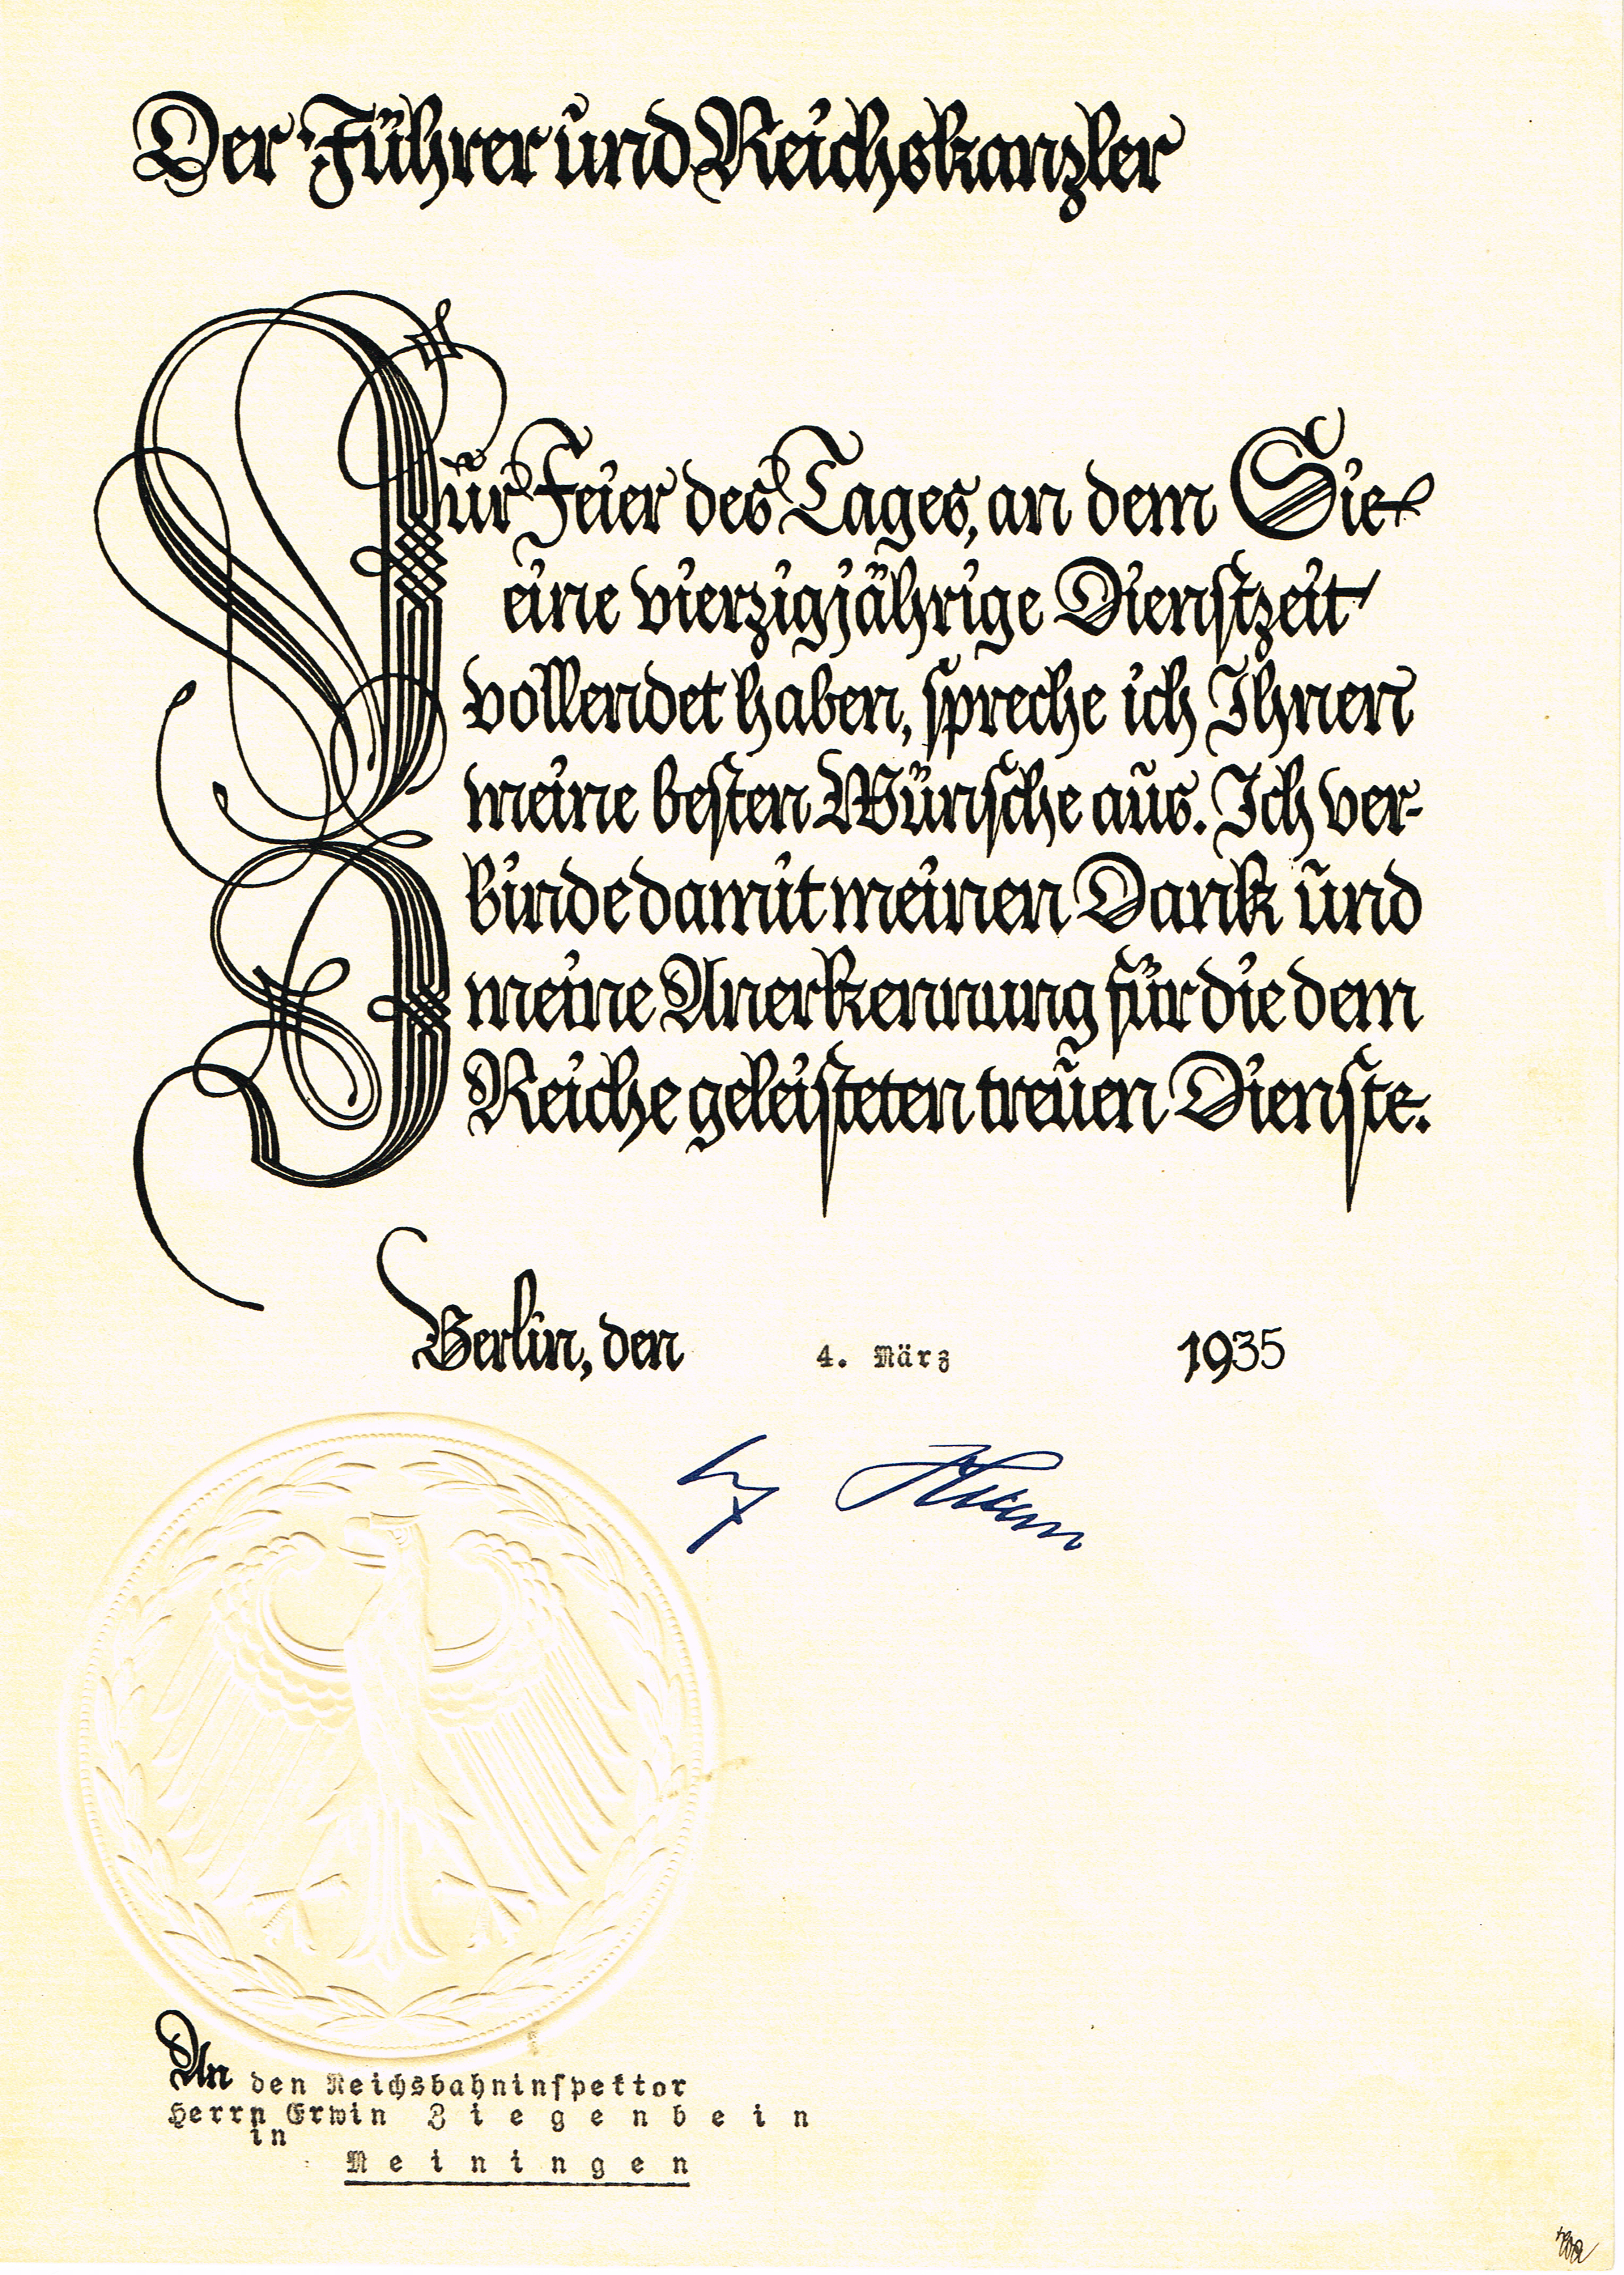 Der Führer und Reichskanzler
Zur Feier des Tages, an dem Sie
eine vierzigjährige Dienstzeit
vollendet haben, spreche ich Ihnen
meine besten Wünsche aus. Ich ver-
binde damit meinen Dank und
meine Anerkennung für die dem
Reiche geleisteten treuen Dienste.
Berlin, den 4. März 1935
An den Reichsbahninspektor
Herrn Erwin Ziegenbein
in
Meiningen